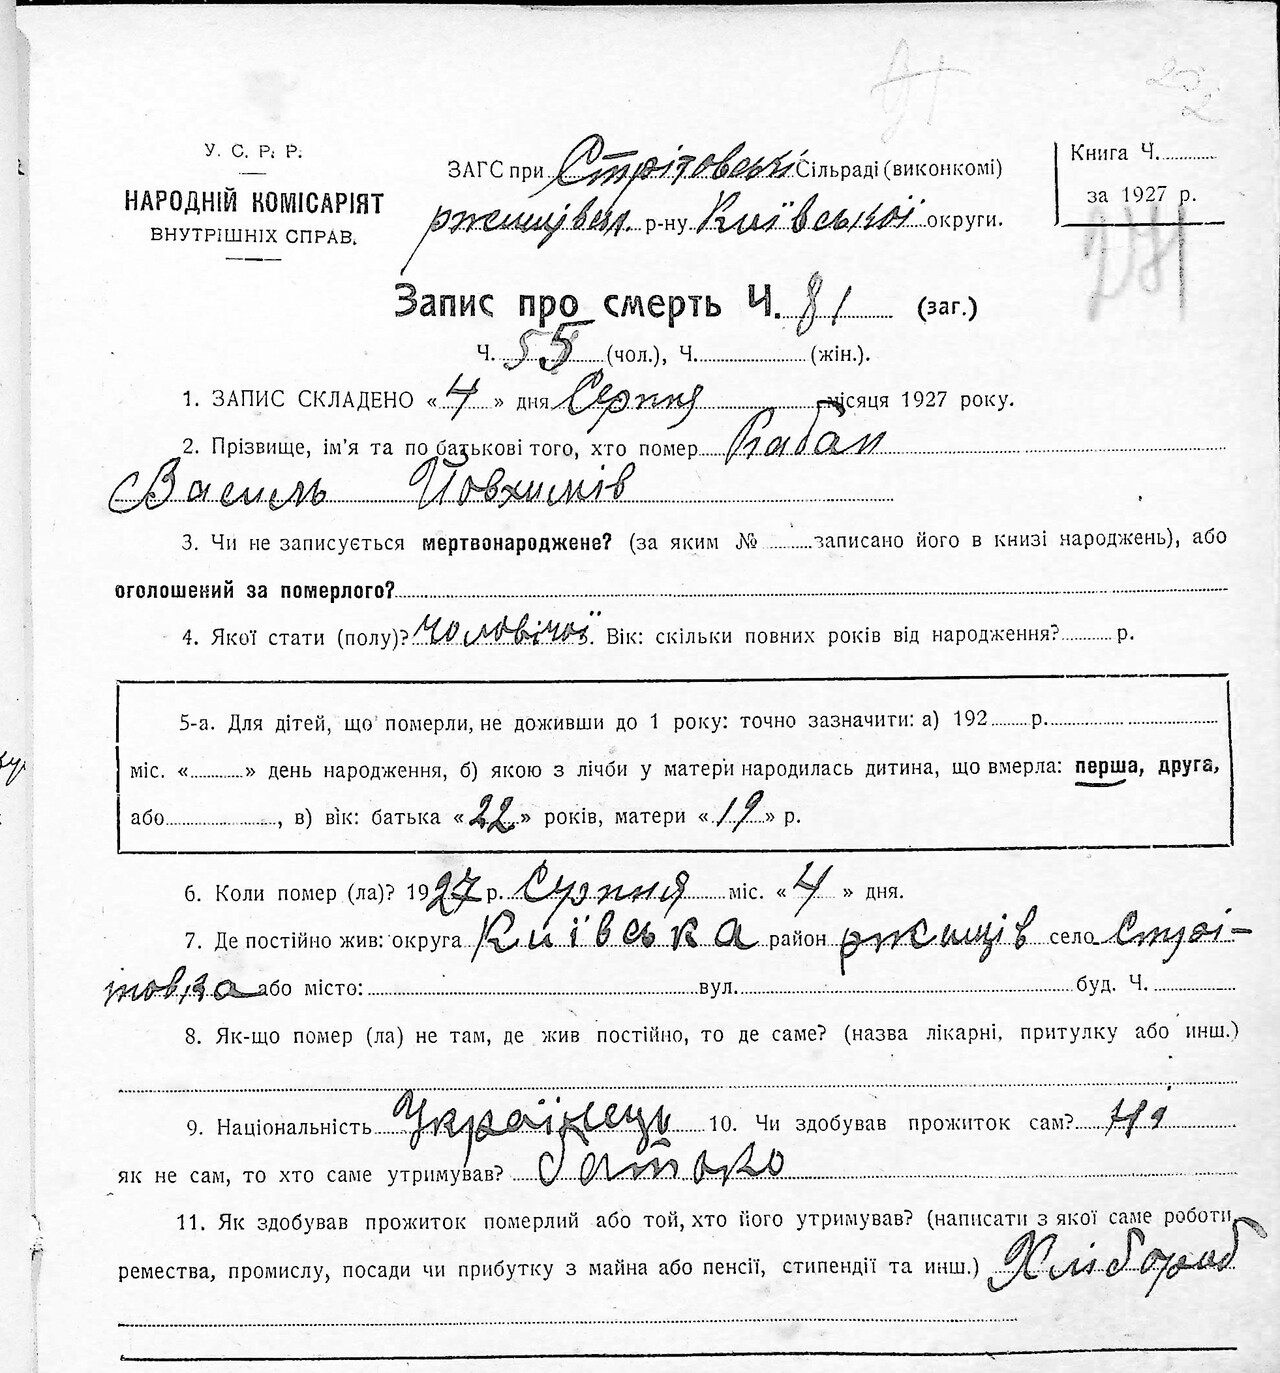 У. С. Р. Р.
НАРОДНІЙ КОМІСАРІЯТ
ВНУТРІШНІХ СПРАВ.
ЗАГС при Стрітовські Сільраді (виконкомі)
ржищівськ. р-ну Київської округи.
Книга Ч.
за 1927 р.
281
Запис про смерть Ч. 81 (заг.)
Ч. 55 (чол.), Ч. (жін.).
1. ЗАПИС СКЛАДЕНО «4» дня Серпня місяця 1927 року.
2. Прізвище, ім'я та по батькові того, хто помер Кабан
Василь Йовхимів
3. Чи не записується мертвонароджене? (за яким № записано його в книзі народжень), або
оголошений за померлого?
4. Якої стати (полу)? чоловічої. Вік: скільки повних років від народження? р.
5-а. Для дітей, що померли, не доживши до 1 року: точно зазначити: а) 192 р.
міс. « » день народження, б) якою з лічби у матери народилась дитина, що вмерла: перша, друга,
або , в) вік: батька «22» років, матери «19» р.
6. Коли помер (ла)? 1927 р. Серпня міс. «4» дня.
7. Де постійно жив: округа Київська район ржищів село Стрі-
товка або місто: вул. буд. Ч.
8. Як-що помер (ла) не там, де жив постійно, то де саме? (назва лікарні, притулку або инш.)
9. Національність Українець 10. Чи здобував прожиток сам? ні
як не сам, то хто саме утримував? батько
11. Як здобував прожиток померлий або той, хто його утримував? (написати з якої саме роботи
ремества, промислу, посади чи прибутку з майна або пенсії, стипендії та инш.) Хлібороб